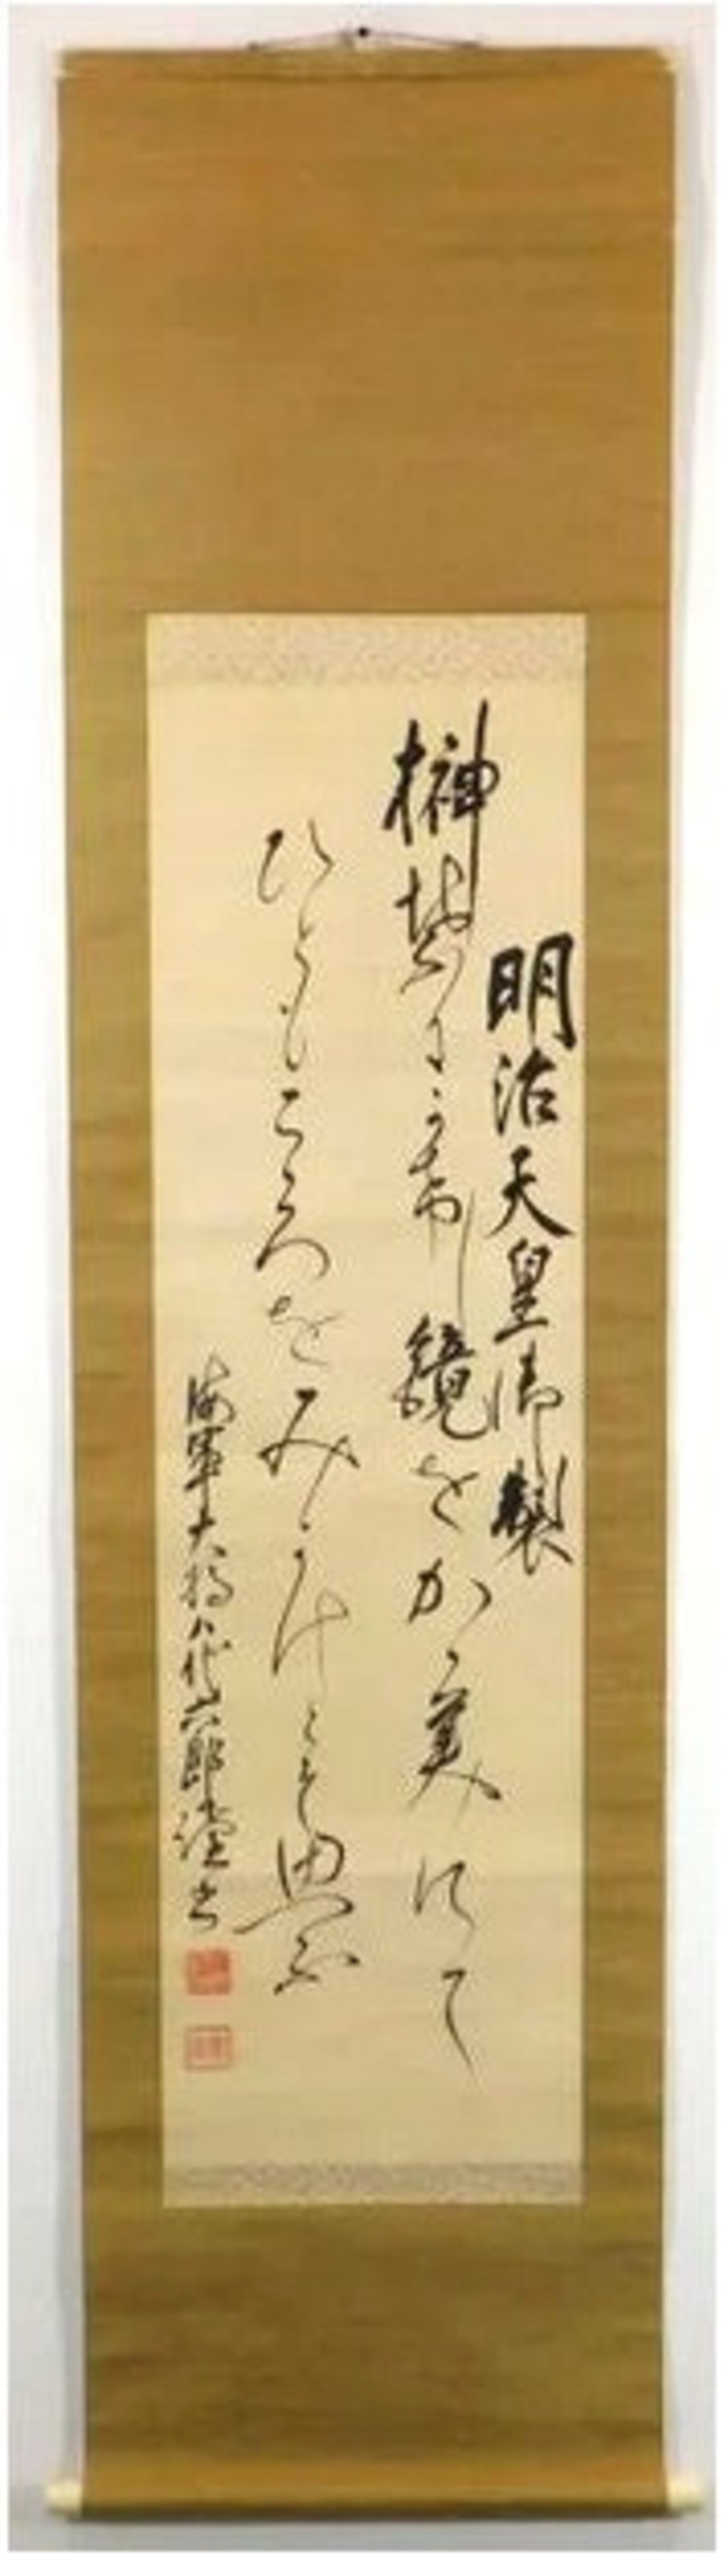 明治天皇御製
榊葉にかけし鏡をかゝ美にて
ひともこゝろをみかけとそ思ふ
海軍大将八代六郎謹書